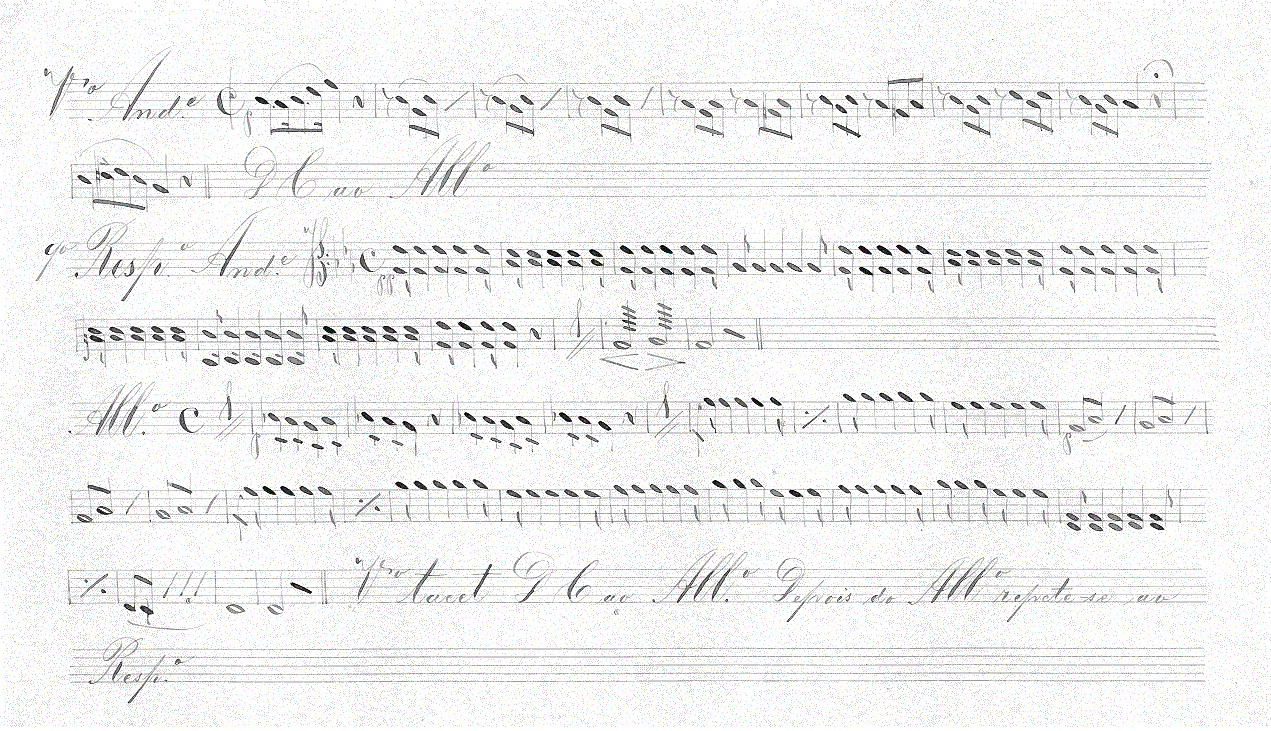 Vso. And.e C p
D C ao All.o
9o Resp.o And.e C pp
All.o C p
p
Vso tacet D C ao All.o Depois do All.o repete-se ao
Resp.o